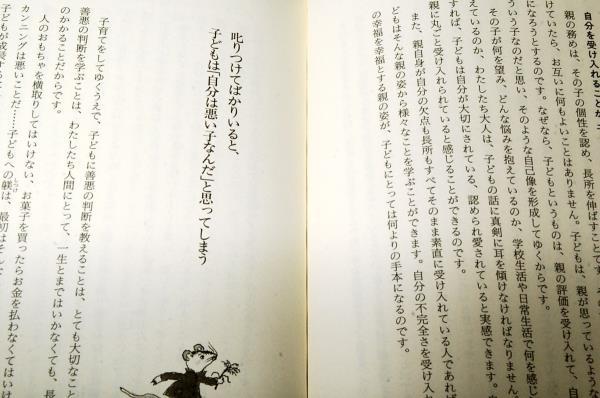 自分を受け入れることが、子
親の務めは、その子の個性を認め、長所を伸ばすことです。そ
ていたら、お互いに何もよいことはありません。子どもは、親が思っているような
になろうとするのです。なぜなら、子どもというものは、親の評価を受け入れて、自
ういう子なのだと思い、そのような自己像を形成してゆくからです。
その子が何を望み、どんな悩みを抱えているのか、学校生活や日常生活で何を感じ
えているのか、わたしたち大人は、子どもの話に真剣に耳を傾けなければなりません。
すれば、子どもは自分が大切にされている、認められ愛されていると実感できます。自
親に丸ごと受け入れられていると感じることができるのです。
また、親自身が自分の欠点も長所もすべてそのまま素直に受け入れている人であれば
どもはそんな親の姿から様々なことを学ぶことができます。自分の不完全さを受け入れ
の幸福を幸福とする親の姿が、子どもにとっては何よりの手本になるのです。
叱りつけてばかりいると、
子どもは「自分は悪い子なんだ」と思ってしまう
子育てをしてゆくうえで、子どもに善悪の判断を教えることは、とても大切なこ
善悪の判断を学ぶことは、わたしたち人間にとって、一生とまではいかなくても、長
のかかることだからです。
人のおもちゃを横取りしてはいけない、お菓子を買ったらお金を払わなくてはいけ
カンニングは悪いことだ……子どもへの躾は、最初はそんな
子どもが成長する